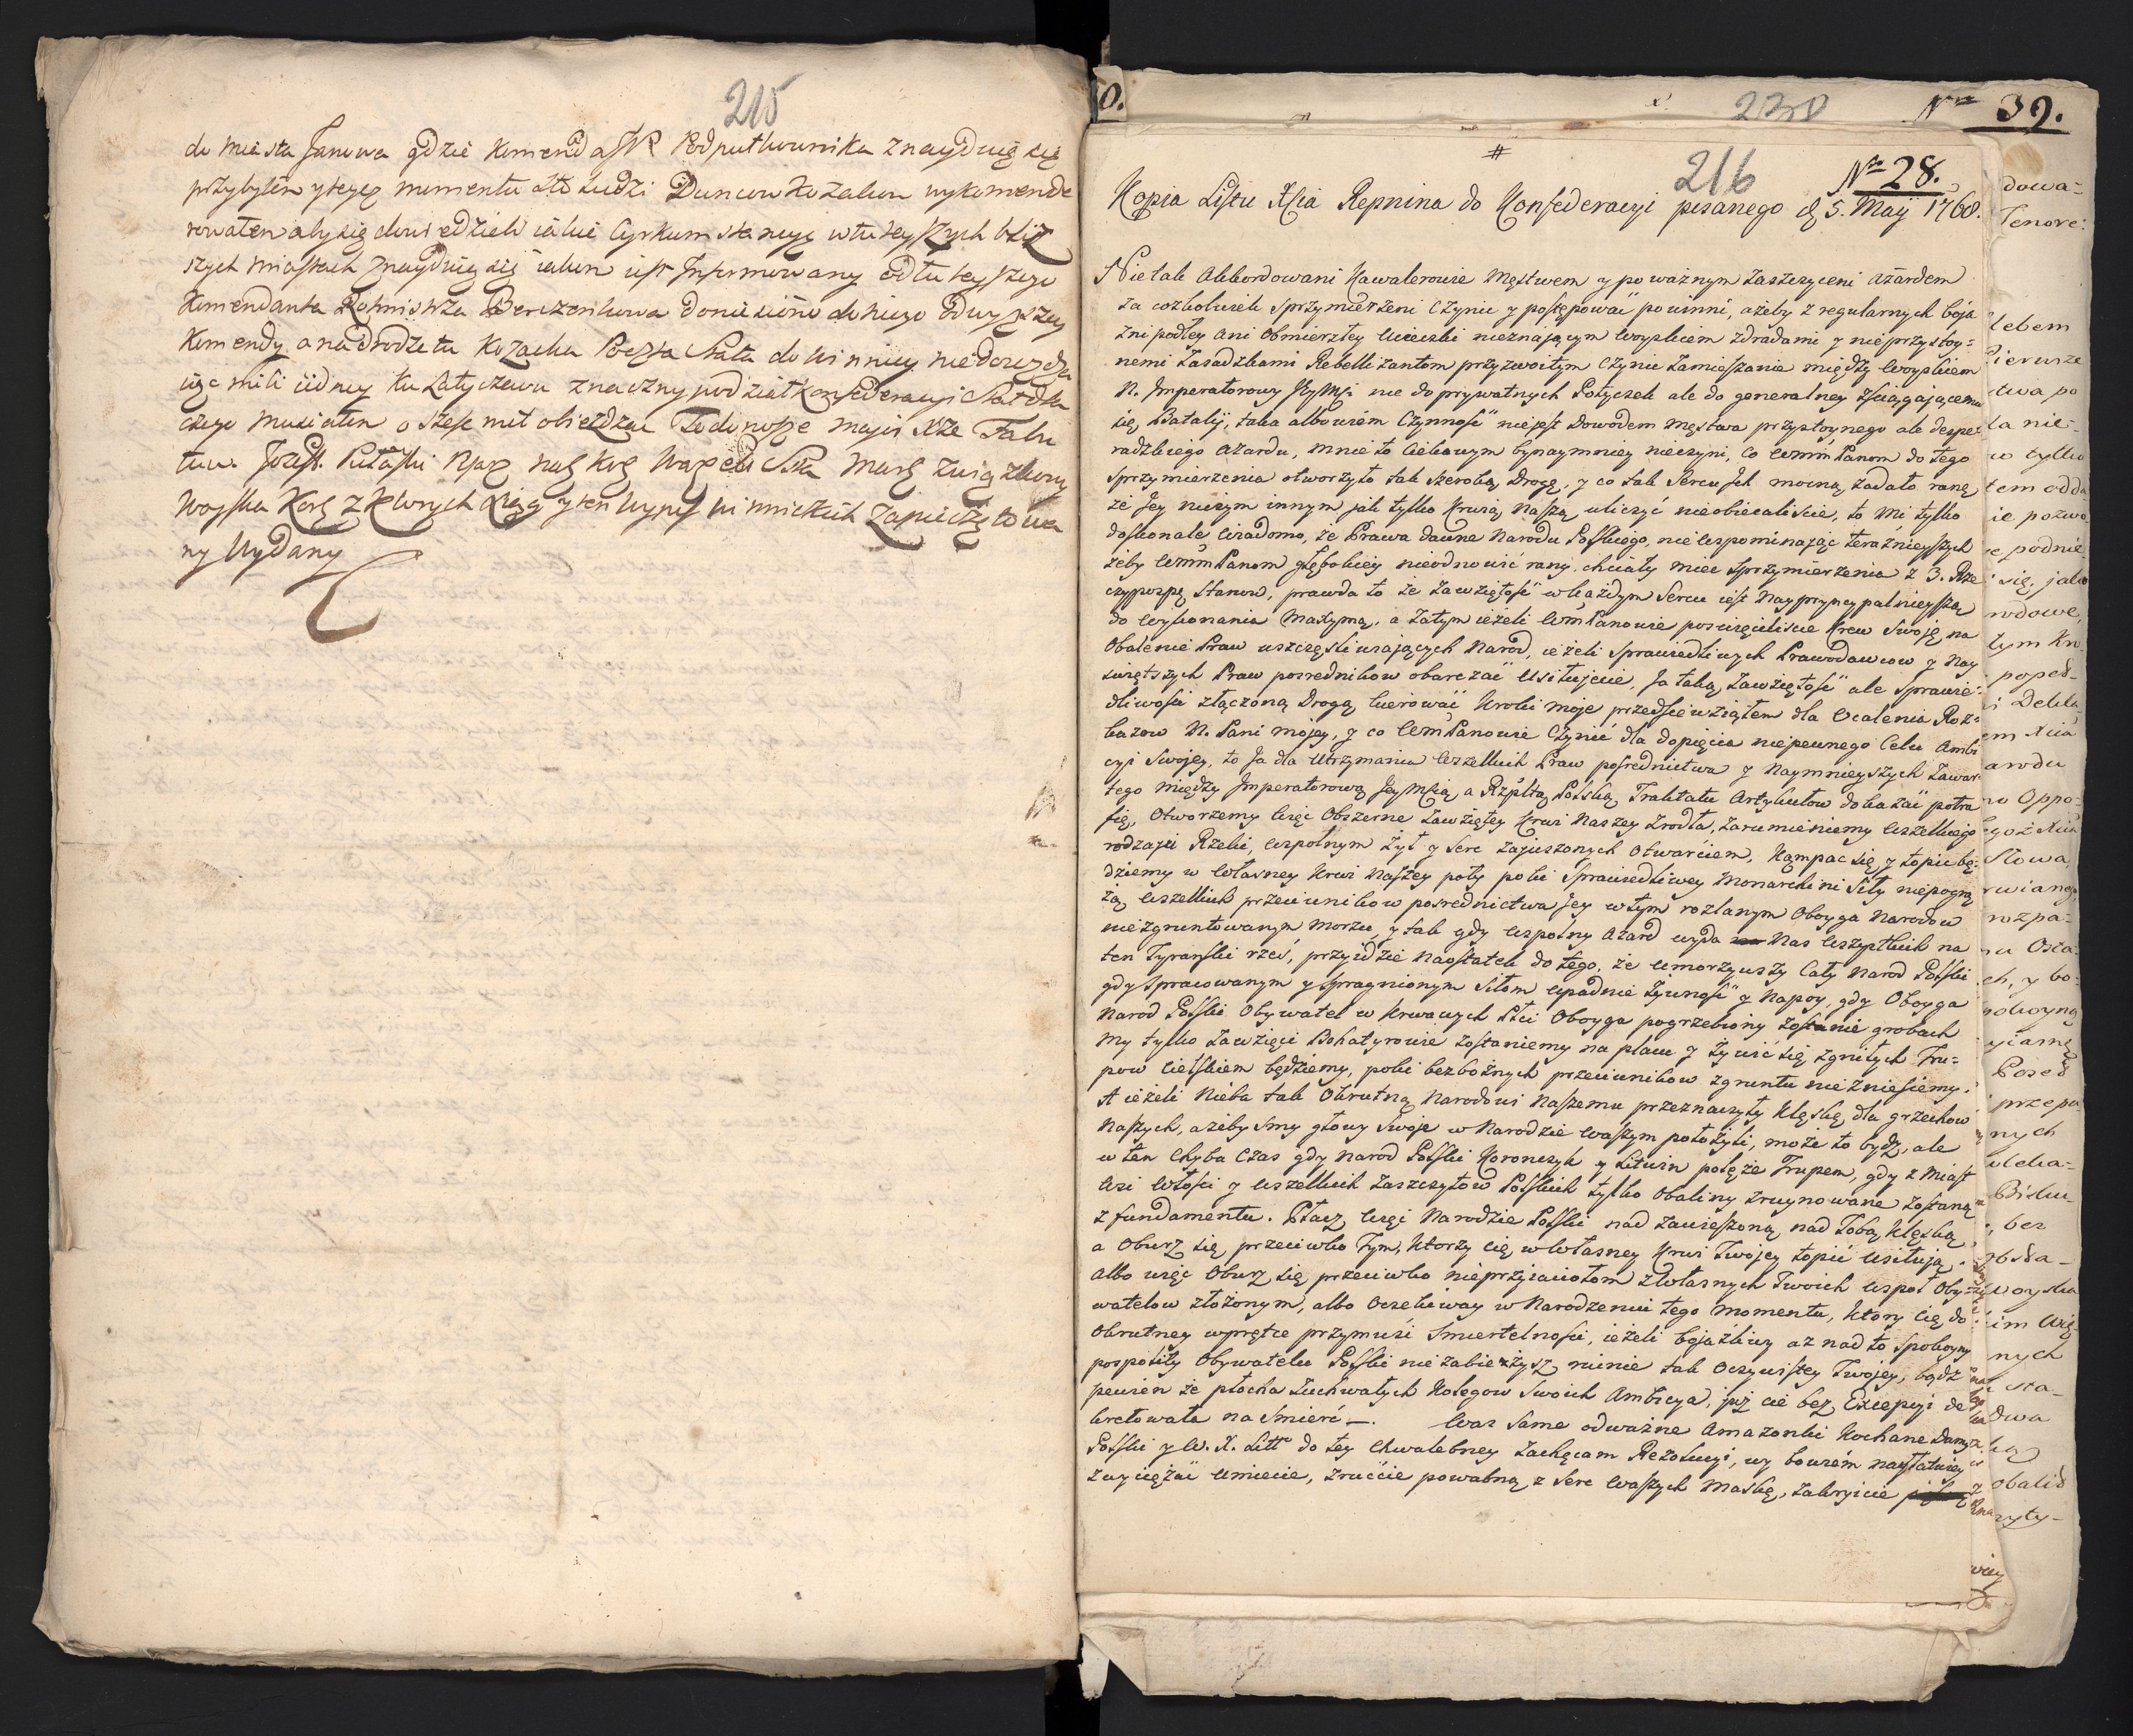 215
do Miasta Janowa gdzie Komenda JP Podpułkownika znayduię się
przybyłem y tegoż momentu sto ludzi Duncow Kozakow wykomende
rowałem aby się dowiedzieli iakie Cyrkumstancye w tuteyszych bliż
szych miastach znayduię się iakom iest Informowany od tuteyszego
Komendanta Rotmistrza Berezenkowa doniesiono do niego od wyższey
Komendy, a na drodze tu Kozacka Poczta Stała do Winnicy nie doiezdza
iąc mili iedney ku Latyczewu znaczny podział Konfederacyi Stał dla
czego musiałem o sześć mil obiezdzac To donoszę Major Xże
Józeff Pułaski
Woyska Kor z Ktorych Xiąg y ten Wypis
ny Wydany
0.
230
Nro 39.
#
216
Nro 28.
Kopia Listu Xcia Repnina do Konfederacyi pisanego d. 5. Maij 1768.
Nietak Akkordowani Kawalerowie Męstwem y poważnym zaszczyceni azardem
za cożkolwiek sprzymierzeni czynic y postępować powinni, ażeby z regularnych boja
zni podłey ani obmierzłey ucieczki nieznającym woyskiem zdradami y nieprzystoy=
nemi zasadzkami Rebellizantom przyzwoitym czynic zamieszanie między woyskiem
N. Imperatorowy JeyMci nie do prywatnych Potyczek ale do generalney zsciągającemu
się Batalij, taka albowiem czynność niejest dowodem męstwa przystoynego ale despe=
radzkiego azardu, mnie to ciekawym bynaymniey nieczyni, co WmmPanom do tego
sprzymierzenia otworzyło tak szeroką drogę, y co tak sercu Ich mocną zadało ranę
że Jey niczym innym jak tylko krwią naszą uliczyć nieobiecaliscie, to mi tylko
doskonale wiadomo, że Prawa dawne Narodu Polskiego, nie wspominając teraznieyszych
żeby WmmPanom głębokiey nieodnowić rany, chciały miec sprzymierzenia z 3. Rze
czypospę Stanow, prawda to że zawziętość w każdym sercu iest nayprzyncypalnieyszą
do wykonania maxymą, a zatym ieżeli WmPanowie poswięciliscie krew swoję na
obalenie Praw uszczęśliwiających Narod, ieżeli sprawiedliwych Prawodawcow y nay
swiętszych Praw posrednikow obarczać usiłujecie, Ja taką zawziętość ale sprawie=
dliwości złączoną drogą kierować kroki moje przedsięwziąłem dla ocalenia Roz=
kazow N. Pani mojey, y co WmPanowie czynić dla dopięcia niepewnego celu ambi
cyi swojey, to Ja dla utrzymania wszelkich Praw posrednictwa y naymnieyszych zawar=
tego między Imperatorową JeyMcią a Rzpltą Polską Traktatu artykułow dokazać potra
fię, otworzemy więc obszerne zawziętey krwi naszey zrodła, zarumieniemy wszelkiego
rodzaju Rzeki, wspolnym żył y serc zajuszonych otwarciem, kąmpac się, y topic bę=
dziemy w własney krwi naszey poty poki sprawiedliwey Monarchini siły niepogrą
żą wszelkich przeciwnikow posrednictwa Jey w tym rozlanym oboyga Narodow
niezgruntowanym morzu, y tak gdy wspolny azard wyda nas wszystkich na
ten Tyranski rzeź, przyidzie naostatek do tego, że umorzywszy cały Narod Polski
gdy spracowanym y spragnionym siłom upadnie żywność y napoy, gdy oboyga
Narod Polski Obywatel w krwawych płci oboyga pogrzebiony zostanie grobach
my tylko zawzięci Bohatyrowie zostaniemy na placu y żywić się zgniłych Tru=
pow cielskiem będziemy, poki bezbożnych przeciwnikow zgruntu nie zniesiemy.
A ieżeli Nieba tak okrutną Narodowi naszemu przeznaczyły klęskę dla grzechow
naszych, ażeby smy głowy swoje w Narodzie waszym położyli, może to bydz, ale
w ten chyba czas gdy Narod Polski Koronczyk y Litwin polęże Trupem, gdy z miast
wsi włości y wszelkich zaszczytow Polskich tylko obaliny zruynowane zostaną
z fundamentu. Płacz więc Narodzie Polski nad zawieszoną nad Tobą klęską
a oburz się przeciwko Tym, ktorzy cię w własney krwi Twojey topić usiłują.
Albo więc oburz się przeciwko nieprzyiaciołom z własnych Twoich wspoł Oby=
watelow złożonym, albo oczekiway w Narodzeniu tego momentu, ktory cię do
okrutney wprętce przymusi smiertelności, ieżeli bojazliwy aż nad to spokoyny
pospolity Obywatelu Polski nie zabieżysz ruinie tak oczywistey Twojey, bądz
pewien że płocha zuchwałych Kolegow swoich Ambicya, już cie bez Excepcyi de
kretowała na smierć —. Was same odważne Amazonki Kochane Damy
Polskie y W. X. Litt do tey chwalebney zachęcam Rezolucyi, wy bowiem nayłatwiey
zwyciężać umiecie, zrućcie powabną z serc waszych maskę, zakryicie
dowa=
Tenore:
lebem
Pierwsze
twa po
ta nie-
w tylko
tem odda
ie pozwo
e podnie
się, jako
rodowe,
tym Kro
poped-
i Delika
em Xcia
arodu
ro Oppo=
ego z Xcia
Słowa,
rwiang
rozpa=
ch, y bo=
okoyną
yiamę
Posed
przepu
nych
Bisku-
bez
obsta-
woyska
nych
sta-
dwa
obalił
ryty-